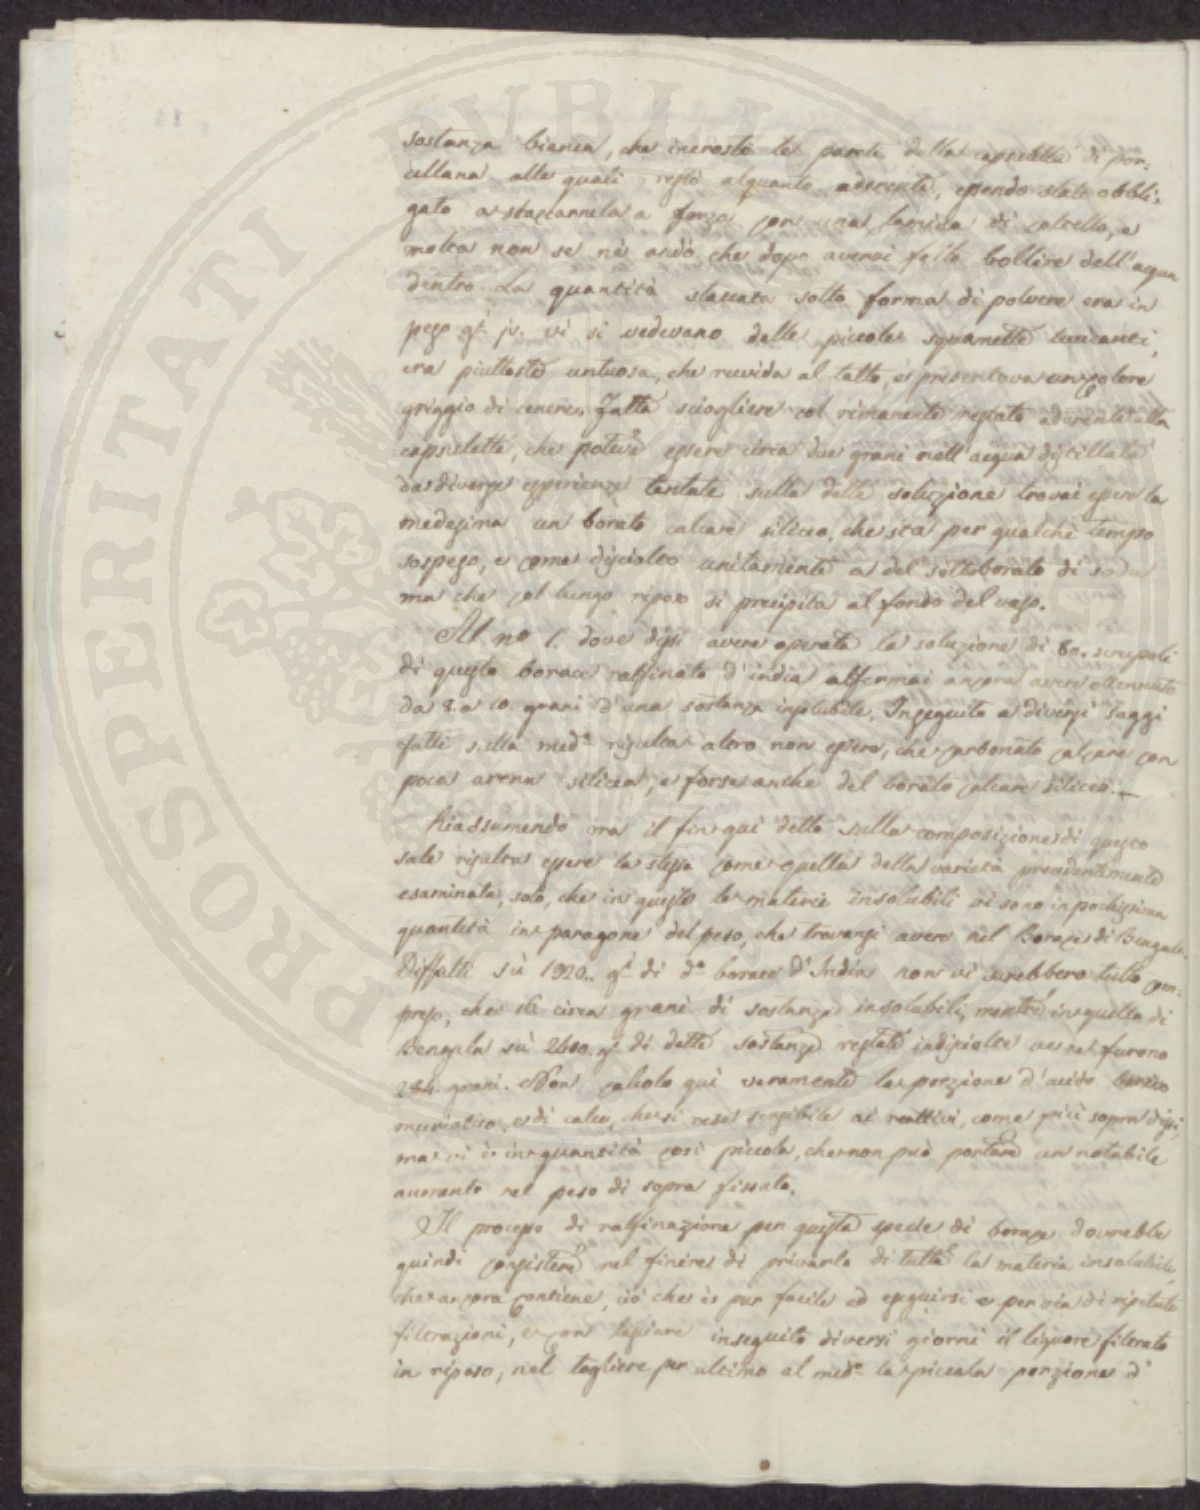 sostanza bianca, che incrostò le pareti della capsuletta di por-
cellana alle quali restò alquanto aderente, essendo stato obbli-
gato a staccarnela a forza con una lamina di coltello, e
molta non se nè andò che dopo avervi fatto bollire dell'acqua
dentro. La quantità staccata sotto forma di polvere era in
peso g.i jv. vi si vedevano delle piccole squamette luccicanti,
era piuttosto untuosa, che ruvida al tatto, e presentava un colore
griggio di cenere. Fatta sciogliere col rimanente restato aderente alla
capsuletta, che poteva essere circa due grani nell'acqua distillata
da diverse esperienze tentate sulla detta soluzione trovai essere la
medesima un borato calcare siliceo, che sta per qualche tempo
sospeso, e come disciolto unitamente a del sottoborato di soda
ma che col lungo riposo si precipita al fondo del vaso.
Al n.o 1. dove dissi avere operata la soluzione di 80. scrupoli
di questo borace raffinato d'india affermai ancora avere ottennuto
da 8. a 10. grani d'una sostanza insolubile. Inseguito a diversi saggi
fatti sulla med.a risulta altro non essere, che carbonato calcare con
poca arena silicea, e forse anche del borato calcare siliceo.—
Riassumendo ora il fin qui detto sulla composizione di questo
sale risulta essere la stessa come quella della varietà precedentemente
esaminata, solo, che in questo le materie insolubili vi sono in pochissima
quantità in paragone del peso, che trovansi avere nel Borace di Bengala.
Diffatti sù 1920. g.i di d.o borace d'India non vi sarebbero tutto com-
preso, che 16 circa grani di sostanze insolubili, mentre in quella di
Bengala sù 2400. g.i di dette sostanze restate indisciolte ve ne furono
284. grani. Non calcolo quì veramente la porzione d'acido
muriatico, e di calce, che si rese sensibile ai reattivi, come più sopra dissi,
ma vi è in quantità così piccola, che non può portare un notabile
aumento nel peso di sopra fissato.
Il processo di raffinazione per questa specie di borace dovrebbe
quindi consistere nel finire di privarla di tutta la materia insolubile,
che ancora contiene, ciò che è pur facile ad eseguirsi e per via di ripetute
filtrazioni, e con lasciare inseguito diversi giorni il liquore filtrato
in riposo, nel togliere per ultimo al med.o la piccola porzione d'
PROSPERITATI PUBLIC